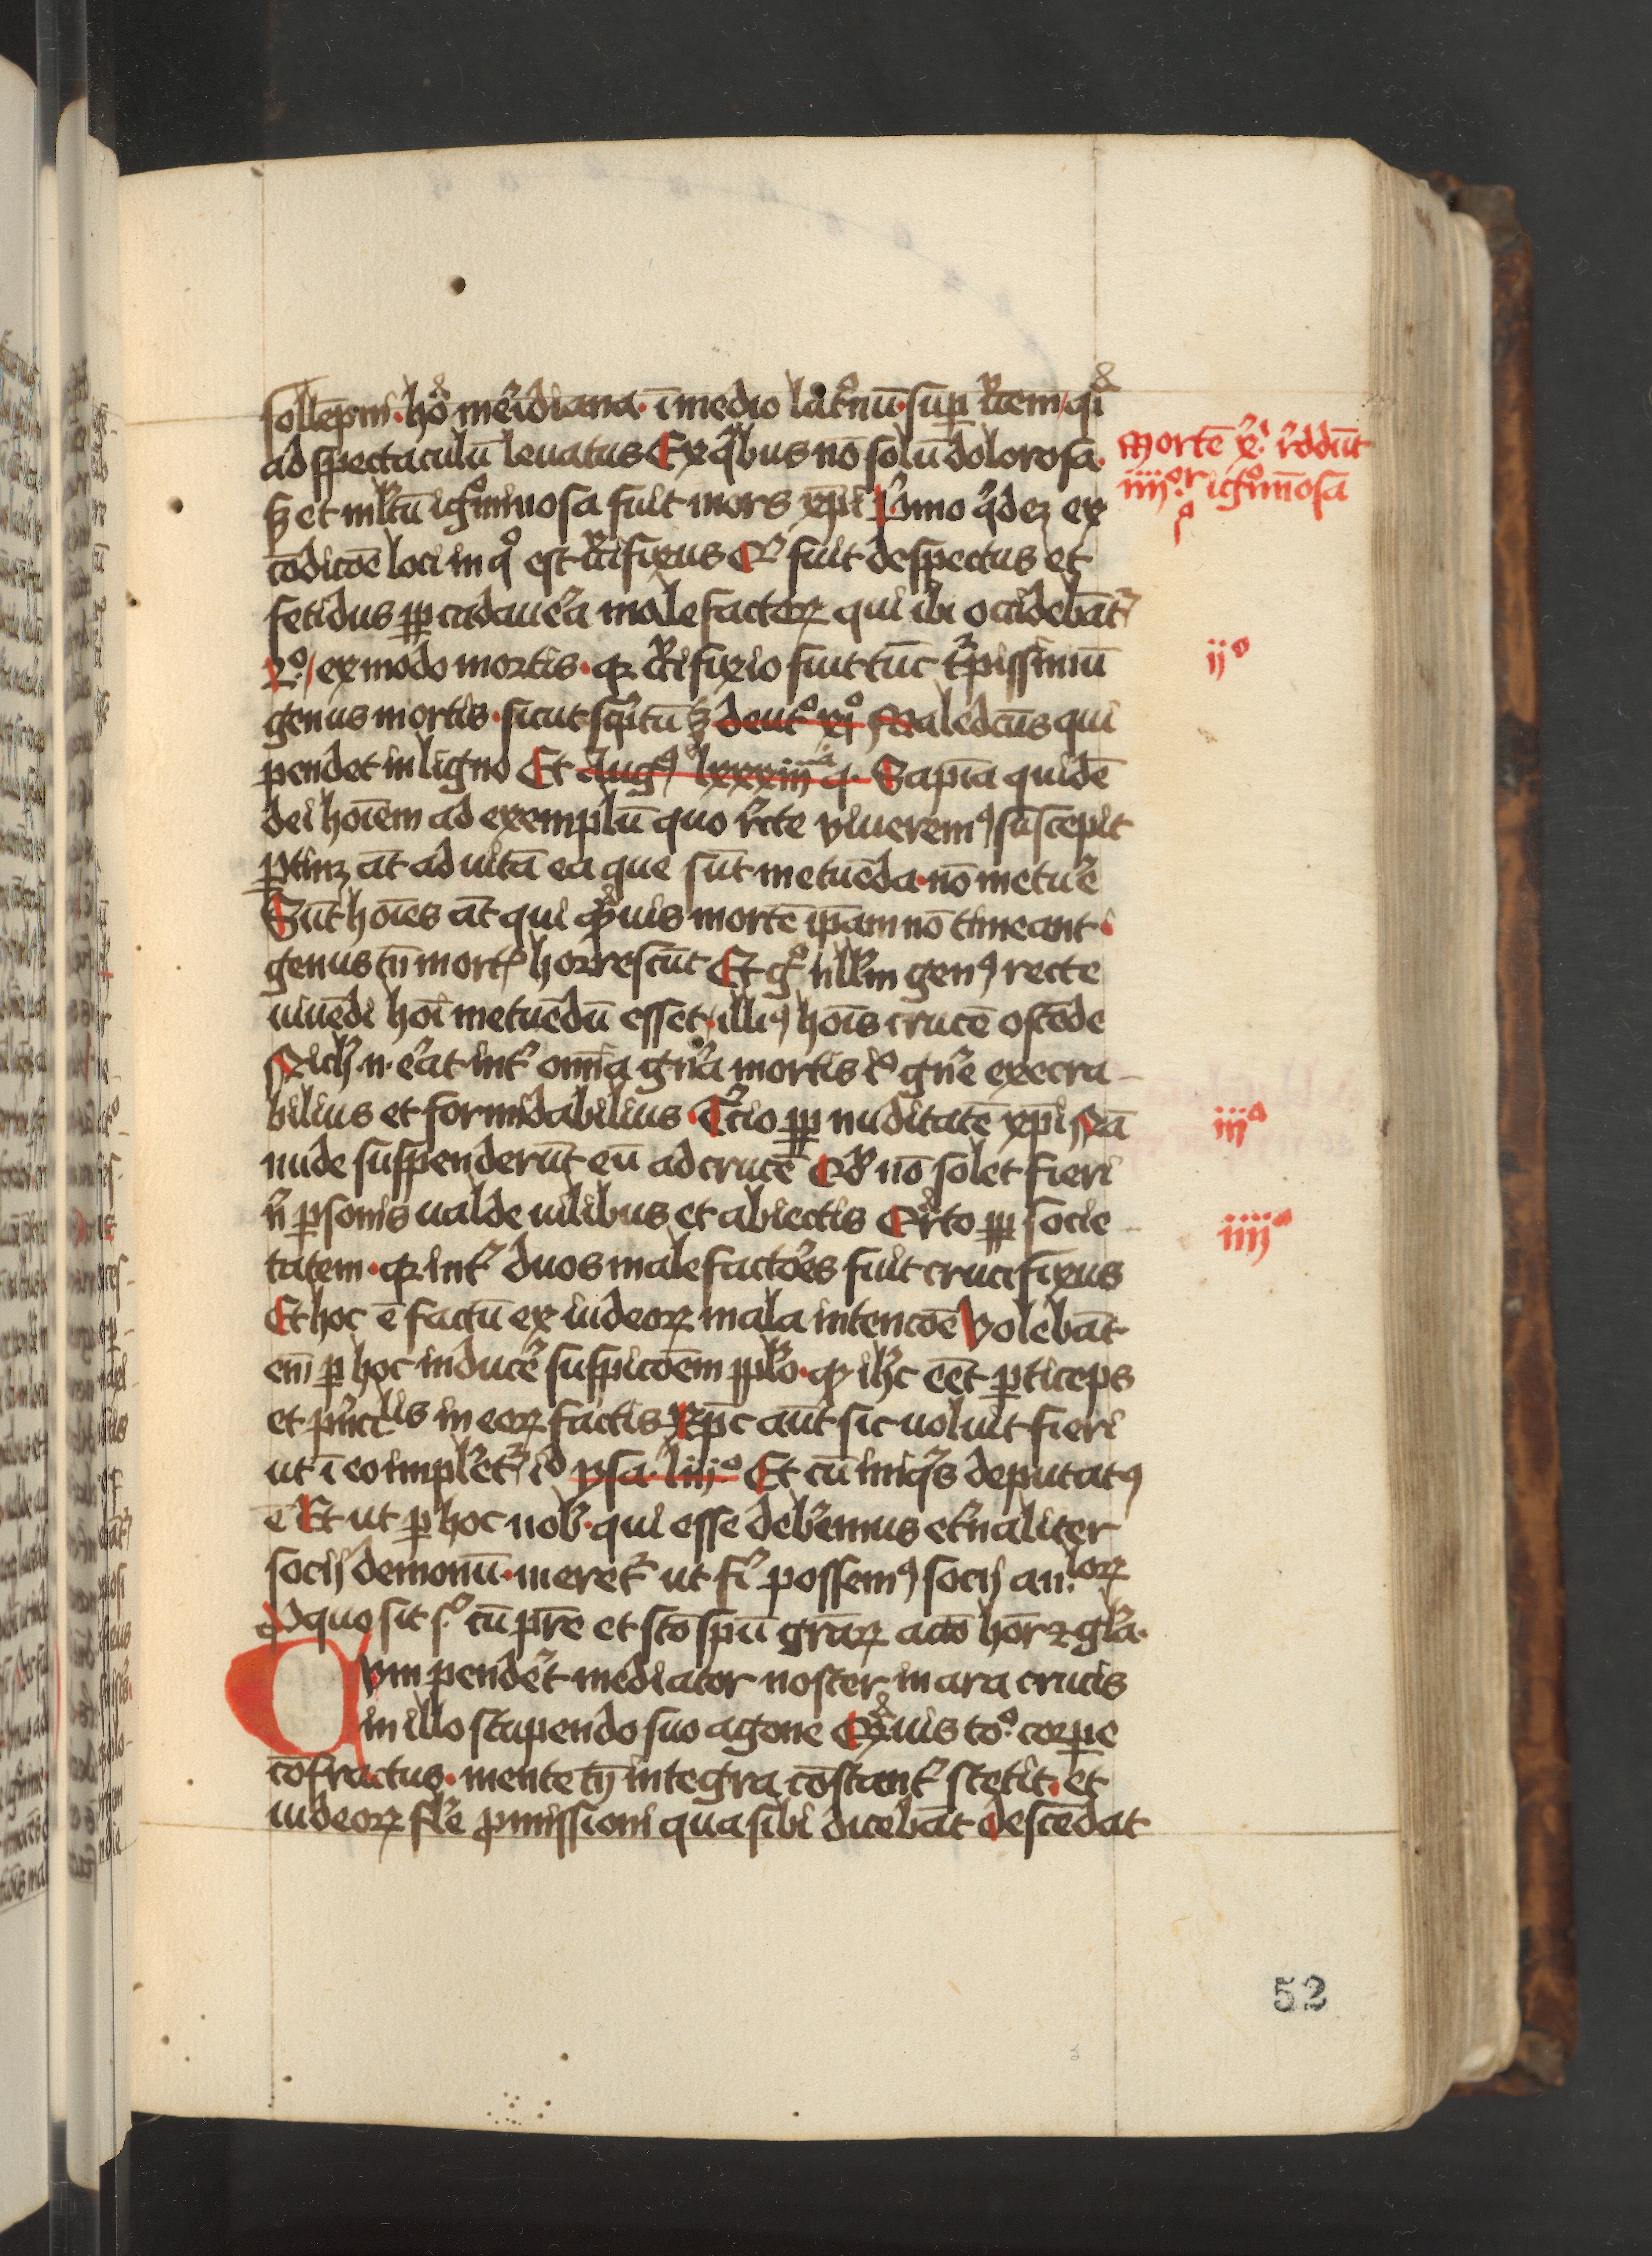 sollēpni · hoᵃ me͛idiana · ī medio lat͛onū · suꝑ cͬcem / qͣi
ad spectaculū leuatus Ex qͥbus nō solū dolorosa ·
sꝫ et ml̄tū igͦminosa fuit mors xp̄i Pͥmo qͥdeꝫ ex
cōdicōe loci in qͦ est cͬcifixus Qͥ fuit despectus et
fetidus ꝓpt cadaue͛a malefactoꝝ qui ibi occidebāt᷑
2º / ex modo mortis · qꝛ cͬcifixio fuit tūc tͬpissimū
genus mortis · sicut scͥptū ꝫ deutº xxiº Maledcūs qui
pendet in ligno Et Augꝰ lxxxiij q · Sapīa quidē
dei hoīem ad exemplū quo rͨcte viueremꝰ suscepit
ꝑtinꝫ āt ad uitā ea que sūt metuēda · nō metue͛
Sūt hoīes āt qui qͣmuis mortē ip̄am nō timeant ·
genus tn̄ mortꝭ horrescūt Et gͦ nll̄m genꝰ recte
uiuēdi hoī metuēdū esset · illiꝰ hoīs crucē ostēde
Nichͥl · n · e͛at int͛ omīa gn͛a mortis iͦ gn͛e execra-
bilius et formidabilius · Tͨcio ꝓpt nuditatē xp̄i Nā
nude suspenderūt eū ad crucē Qd̄ nō solet fieri
nͥ ꝑsonis ualde uilibus et abiectis Qͣrto ꝓpt socie-
tatem · qꝛ int͛ duos malefactōes fuit crucifixus
Et hoc ē factū ex iudeoꝝ mala intencōe Volebāt
em̄ ꝑ hoc induce͛ suspicōem ppl̄o · qꝛ ih̄c eēt ꝑticeps
et pͥnci͛lis in eoꝝ factis Xp̄c aūt sic uoluit fieri
ut ī eo implet͛᷑ iᵈ ysa · liijº Et cū iniqͥs deputatꝰ
ē Et ut ꝑ hoc nob̄ · qui esse deb͛emus et͛naliter
socij demonū · meret᷑ ut fi͛ possemꝰ socij an·loꝝ
P quo sit sͦ cū pr̄e et sc̄o spū gr̄aꝝ accō hor̄ ⁊ gl̄a ·
Cvm pende͛t mediator noster in ara crucis
in illo stupendo suo agone Qͣuis toº · corꝑe
cōfractus · mente tn̄ integra cōstant͛ stetit · et
iudeoꝝ fl͛e ꝓmissioni qua sibi dicebāt descēdat
Mortē x͛ · rͨddūt
iiijºʳ · igͦmīosā
pº
ijº
iijº
iiijº
52